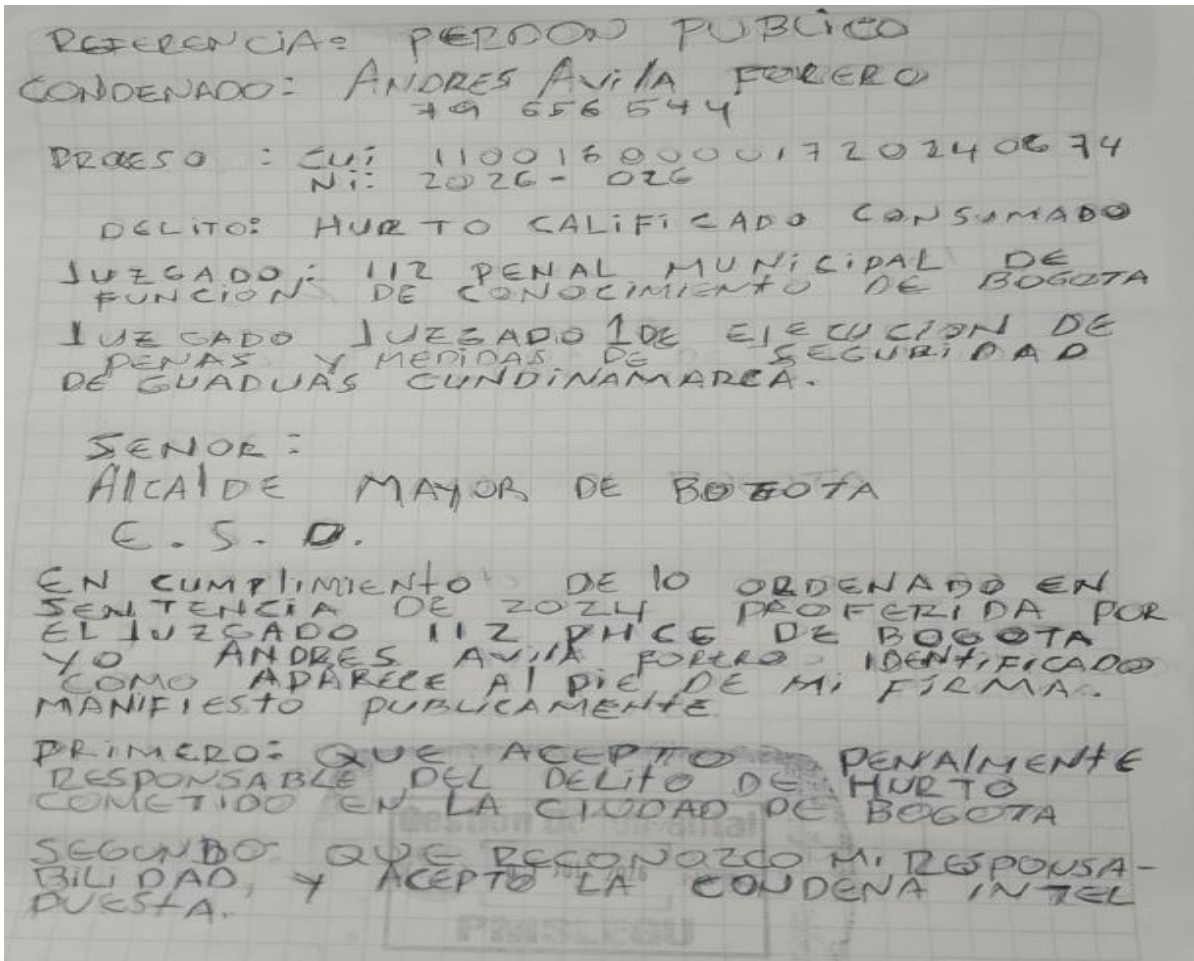 REFERENCIA: PERDON PUBLICO
CONDENADO: ANDRES AVILLA FORERO
79 656 544
PROCESO : CUI 11001600001720240674
NI: 2026-026
DELITO: HURTO CALIFICADO CONSUMADO
JUZGADO: 112 PENAL MUNICIPAL DE
FUNCION DE CONOCIMIENTO DE BOGOTA
JUZGADO JUZGADO 1 DE EJECUCION DE
PENAS Y MEDIDAS DE SEGURIDAD
DE GUADUAS CUNDINAMARCA.
SENOR:
AlCAlDE MAYOR DE BOGOTA
E. S. D.
EN CUMPlIMIENTO DE lO ORDENADO EN
SENTENCIA DE 2024 PROFERIDA POR
EL JUZGADO 112 PMCE DE BOGOTA
YO ANDRES AVIllA FORERO IDENTIFICADO
COMO APARECE Al PIE DE MI FIRMA.
MANIFIESTO PUBLICAMENTE
PRIMERO: QUE ACEPTO PENAlMENTE
RESPONSABLE DEL DELITO DE HURTO
COMETIDO EN LA CIUDAD DE BOGOTA
SEGUNDO QUE RECONOZCO MI RESPONSA-
BILIDAD, Y ACEPTO LA CONDENA INTEL
PUESTA.